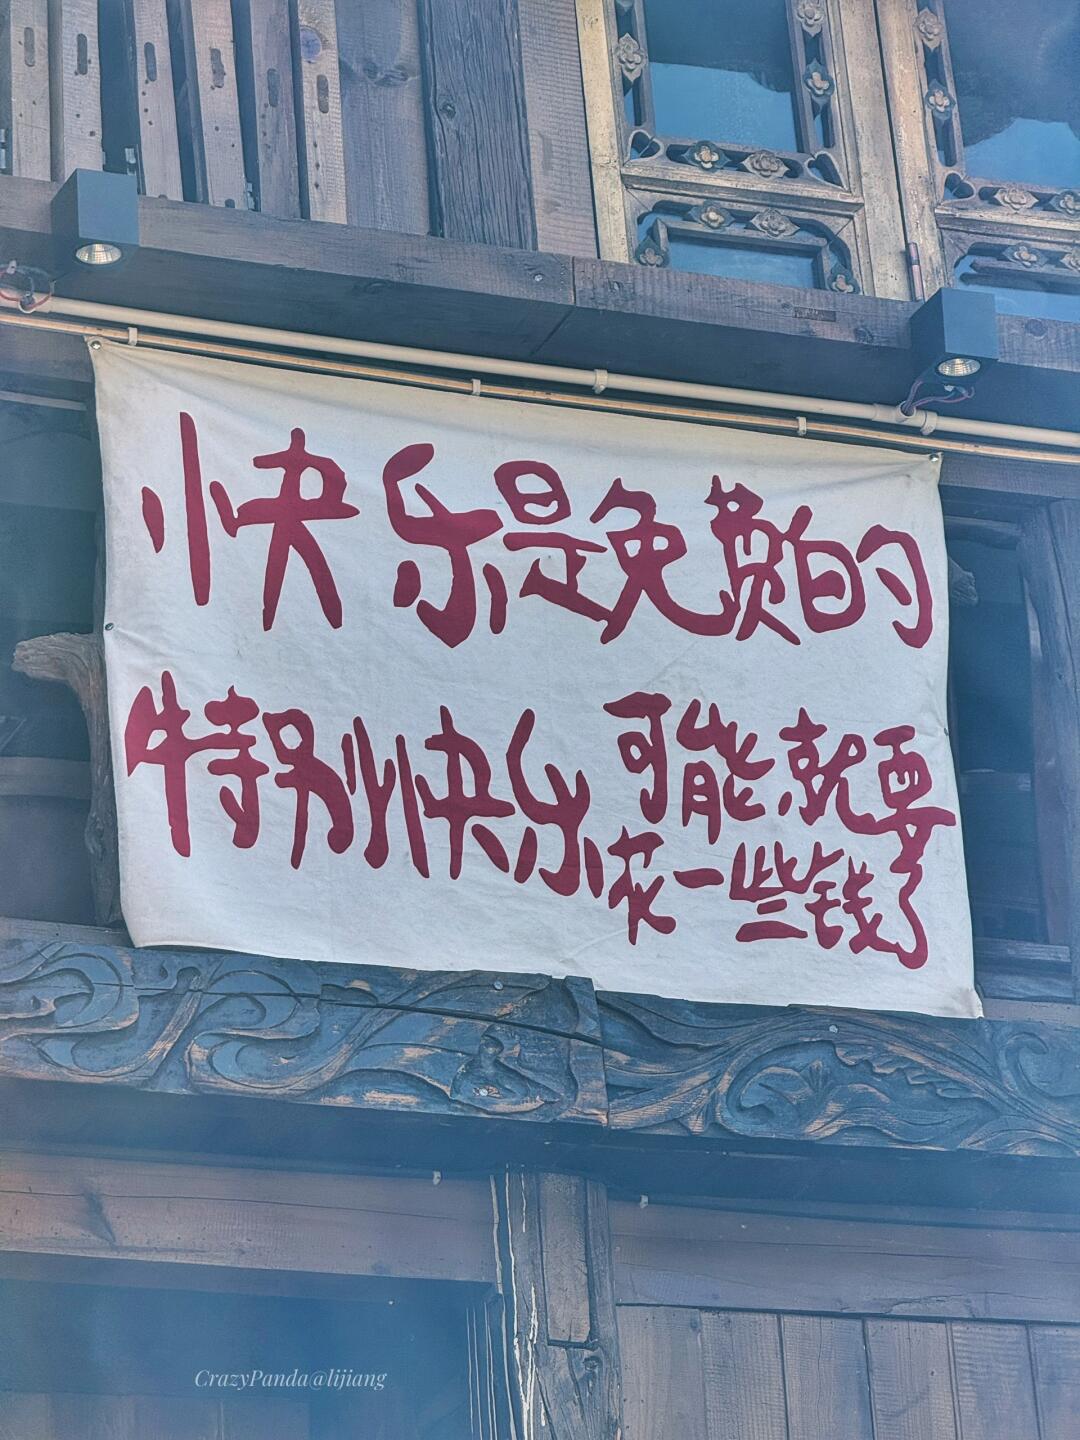 快乐是免费的
特别快乐可能就要
花一些钱了
CrazyPanda@lijiang